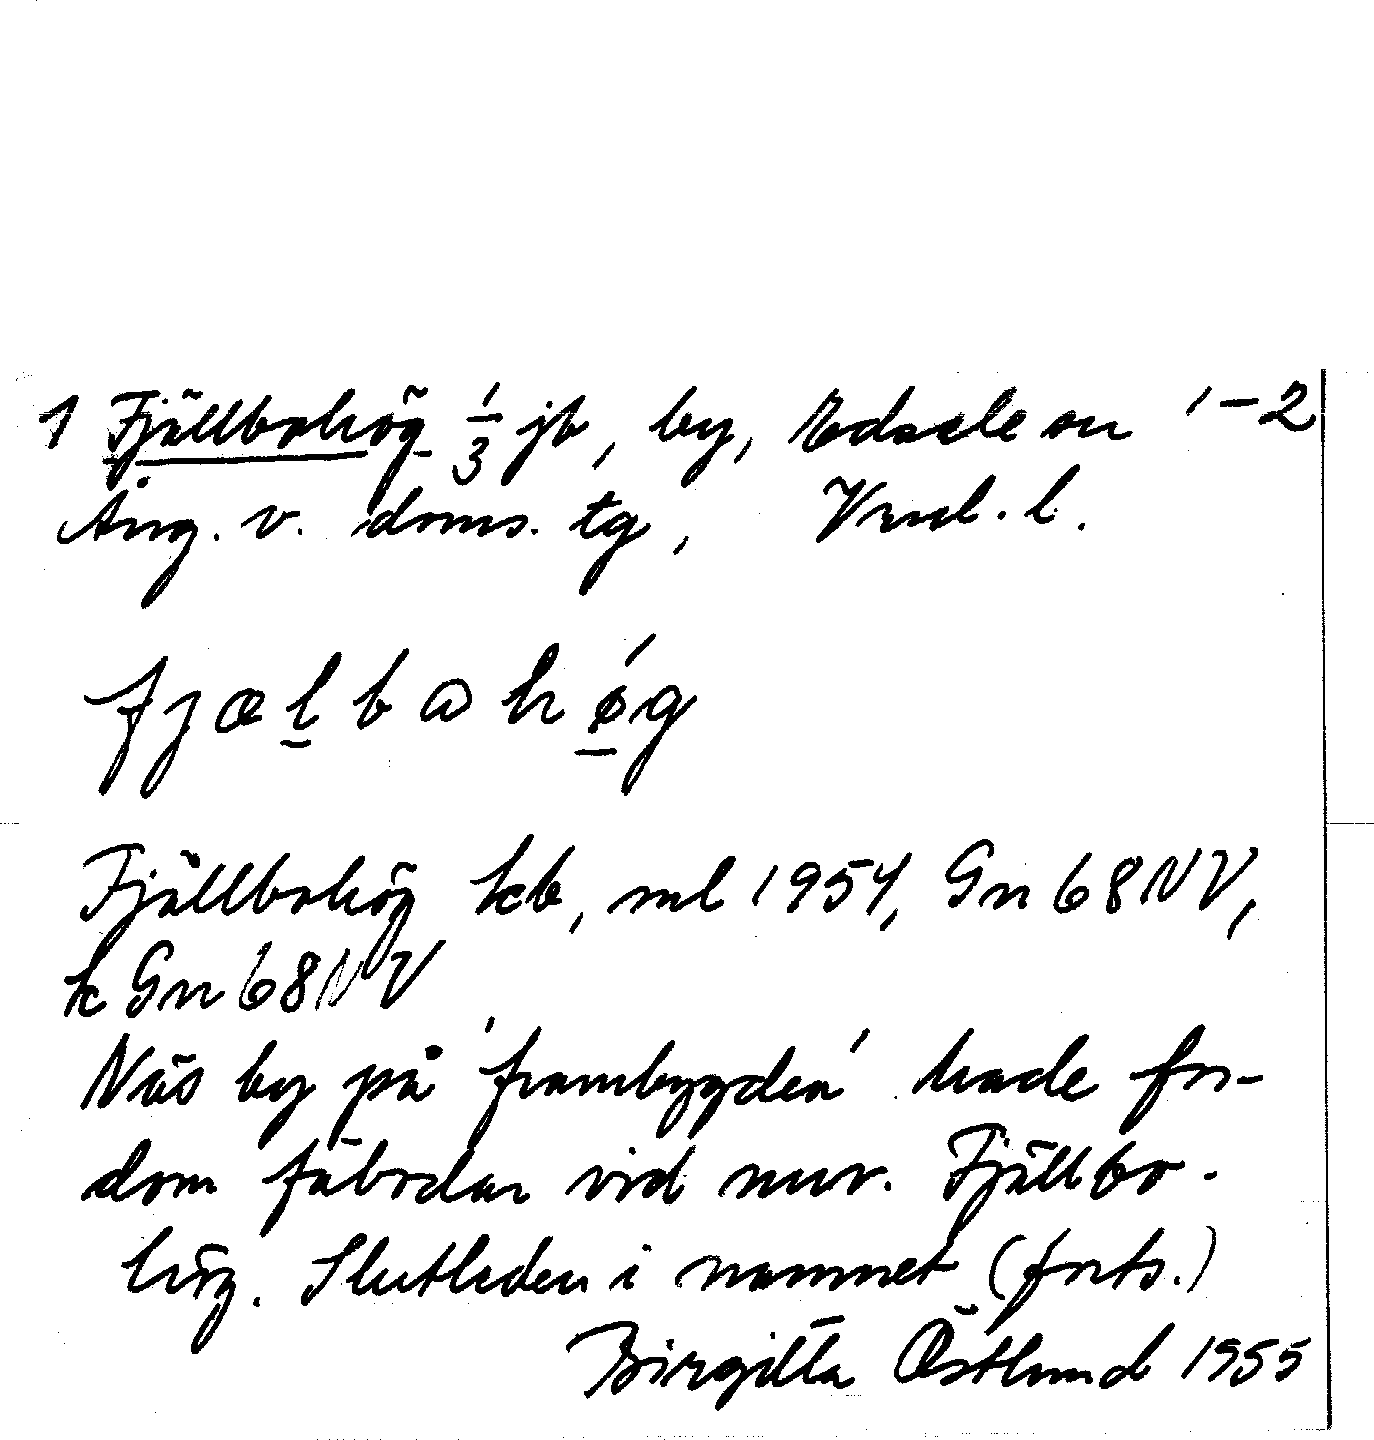 1 Fjällbohög 1/3 jb, by, Edsele sn 1-2
Ång. v. doms. tg, Vnd. l.
fjælbahǿg
Fjällbohög kb, ml 1954, Gn 68NV,
k Gn 68NV
Näs by på 'frambygden' hade for-
dom fäbodar vid nuv. Fjällbo-
hög. Slutleden i namnet (forts.)
Birgitta Östlund 1955